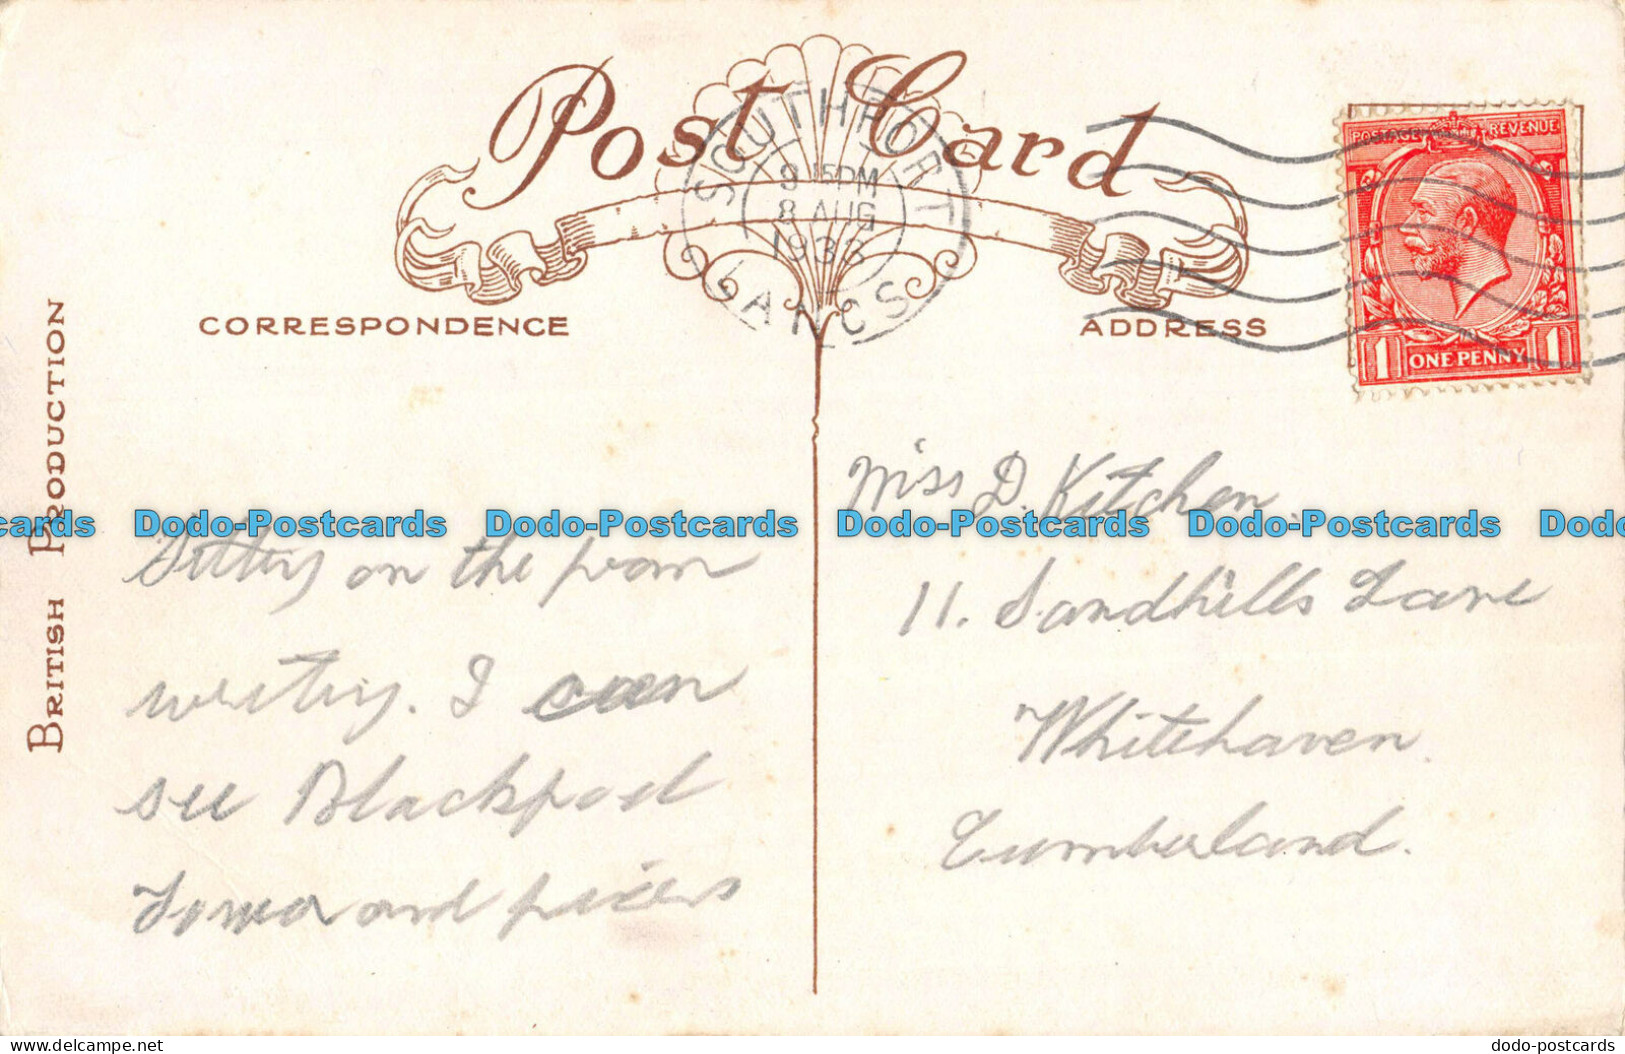 Post Card
SOUTHPORT
9 15PM
8 AUG
1933
LANCS
POSTAGE REVENUE
1 ONE PENNY 1
CORRESPONDENCE
ADDRESS
BRITISH PRODUCTION
Sitting on the prom
writing. I can
see Blackpool
Tower and piers
Miss D. Kitchen.
11. Sandhills Lane
Whitehaven.
Cumberland.
cards Dodo-Postcards Dodo-Postcards Dodo-Postcards Dodo-Postcards Dodo
delcampe.net
dodo-postcards